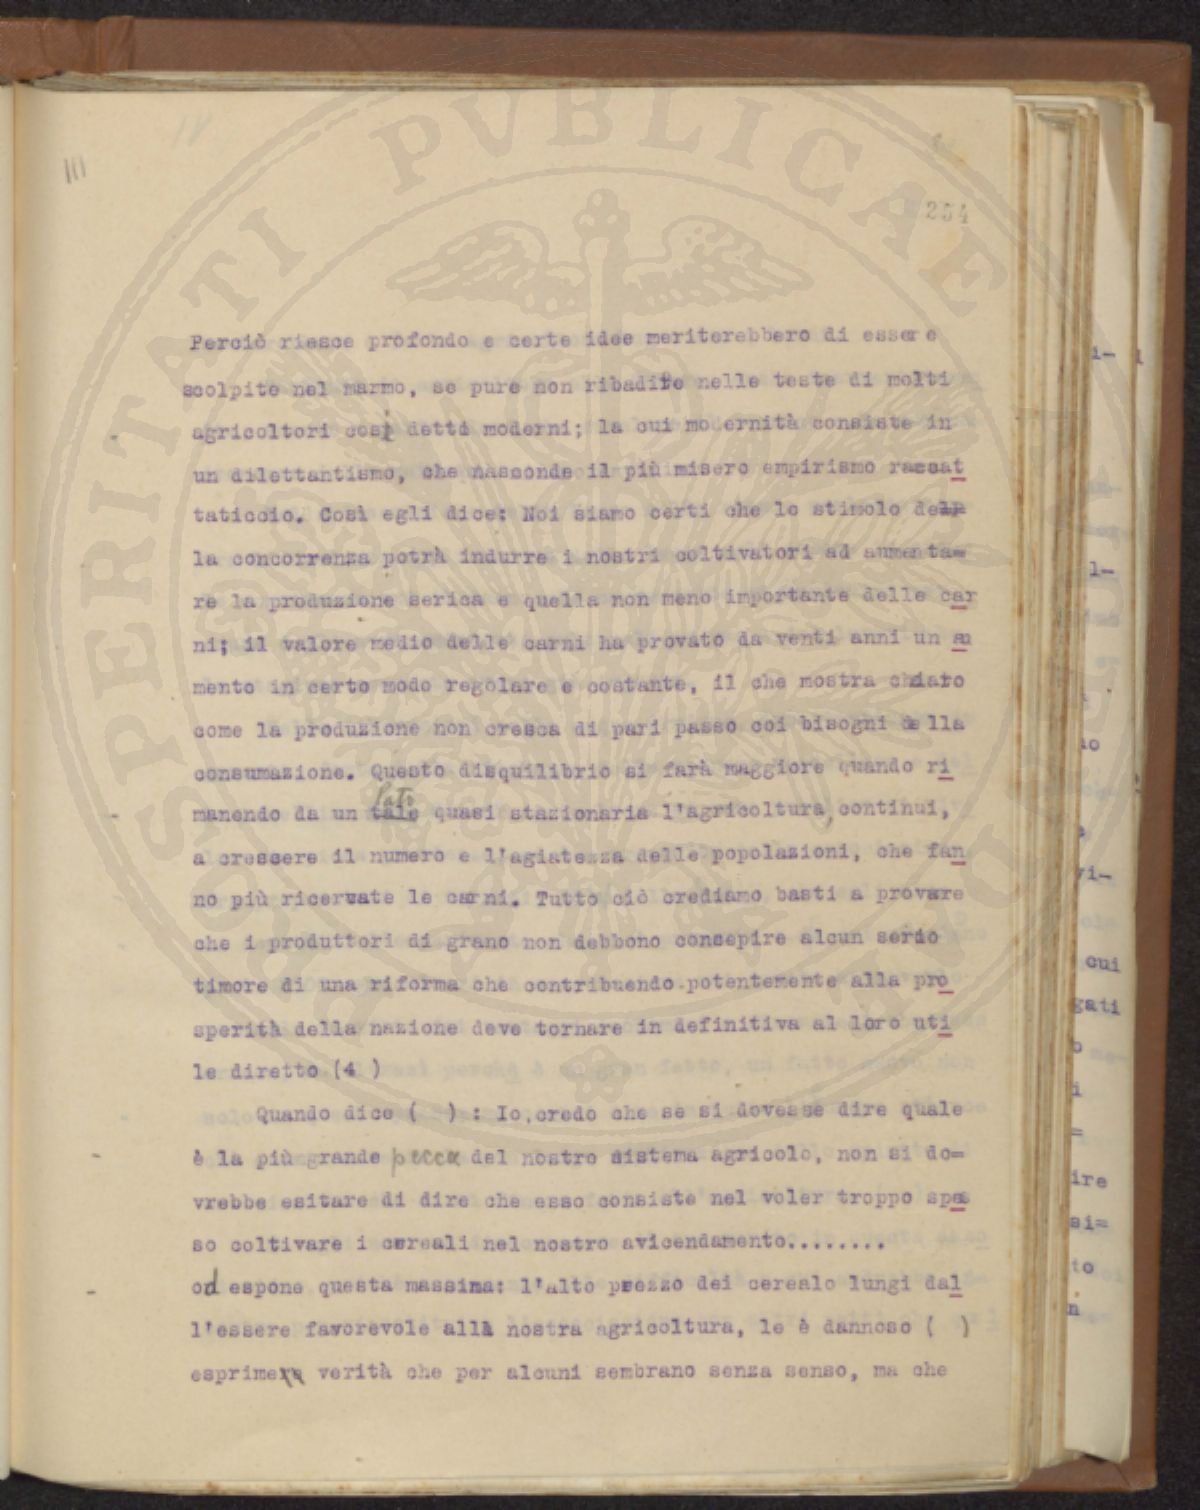 111
254
Perciò riesce profondo e certe idee meriterebbero di essere
scolpite nel marmo, se pure non ribadire nelle teste di molti
agricoltori così detti moderni; la cui modernità consiste in
un dilettantismo, che nasconde il più misero empirismo raccat
taticcio. Così egli dice: Noi siamo certi che lo stimolo del
la concorrenza potrà indurre i nostri coltivatori ad aumenta=
re la produzione serica e quella non meno importante delle car
ni; il valore medio delle carni ha provato da venti anni un au
mento in certo modo regolare e costante, il che mostra chiaro
come la produzione non cresca di pari passo coi bisogni della
consumazione. Questo disquilibrio si farà maggiore quando ri
manendo da un lato quasi stazionaria l'agricoltura, continui,
a crescere il numero e l'agiatezza delle popolazioni, che fan
no più ricercate le carni. Tutto ciò crediamo basti a provare
che i produttori di grano non debbono concepire alcun serio
timore di una riforma che contribuendo potentemente alla pro
sperità della nazione deve tornare in definitiva al loro uti
le diretto (4 )
Quando dice ( ) : Io, credo che se si dovesse dire quale
è la più grande pecca del nostro sistema agricolo, non si do=
vrebbe esitare di dire che esso consiste nel voler troppo spes
so coltivare i cereali nel nostro avicendamento........
od espone questa massima: l'alto prezzo dei cerealo lungi dal
l'essere favorevole alla nostra agricoltura, le è dannoso ( )
esprime verità che per alcuni sembrano senza senso, ma che
i-
l-
io
vi-
cui
gati
o
i
=
ire
si=
to
n
PROSPERITATI PUBLICAE